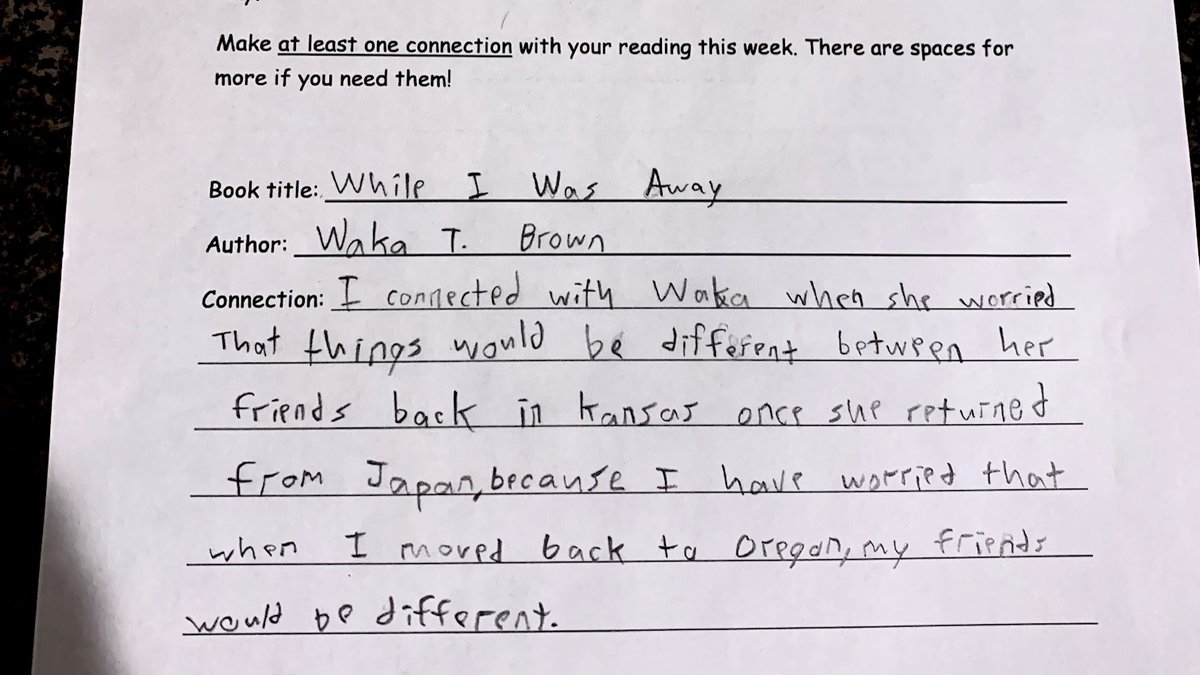 Make at least one connection with your reading this week. There are spaces for
more if you need them!
Book title: While I Was Away
Author: Waka T. Brown
Connection: I connected with Waka when she worried
That things would be different between her
friends back in Kansas once she returned
from Japan, because I have worried that
when I moved back to Oregon, my friends
would be different.